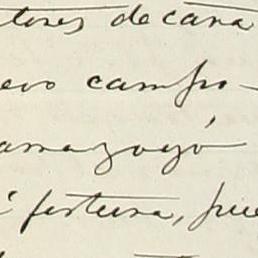 tores de cana
evo campo-
amazoyó
é fortuna, pue